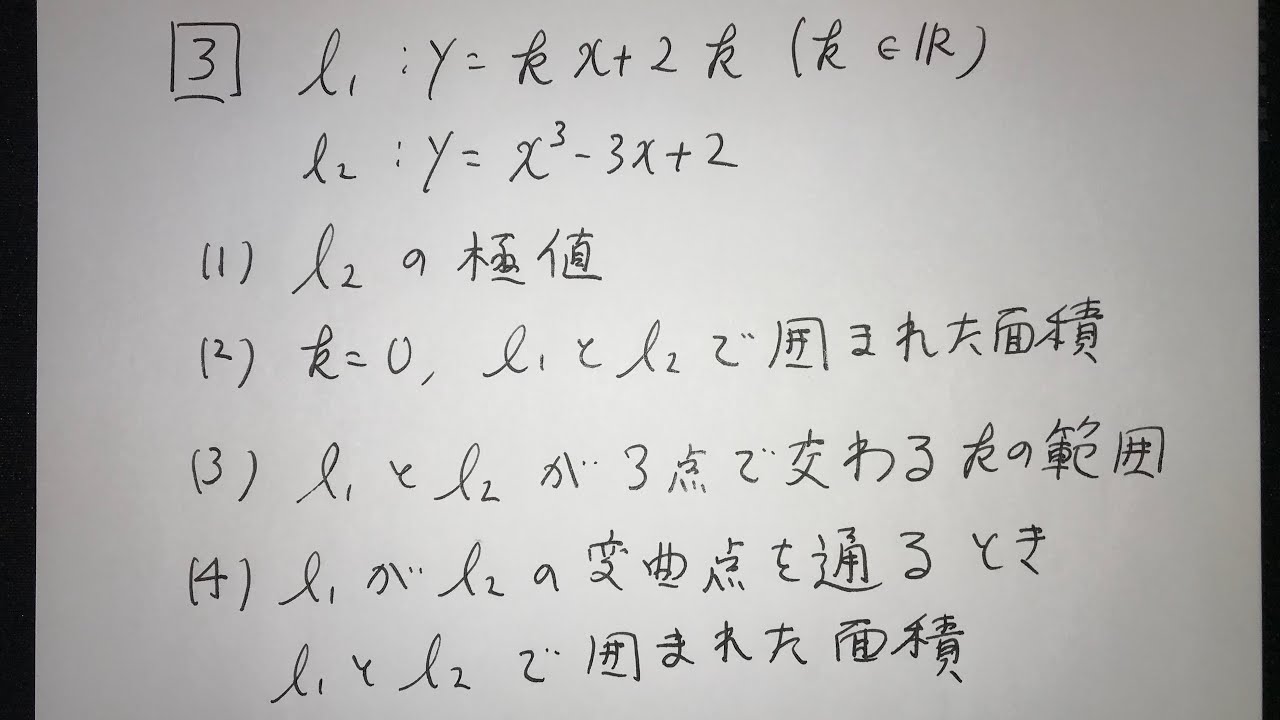 3 l₁:y=kx+2k (k∈ℝ)
l₂:y=x³-3x+2
(1) l₂の極値
(2) k=0, l₁とl₂で囲まれた面積
(3) l₁とl₂が3点で交わるkの範囲
(4) l₁がl₂の変曲点を通るとき
l₁とl₂で囲まれた面積